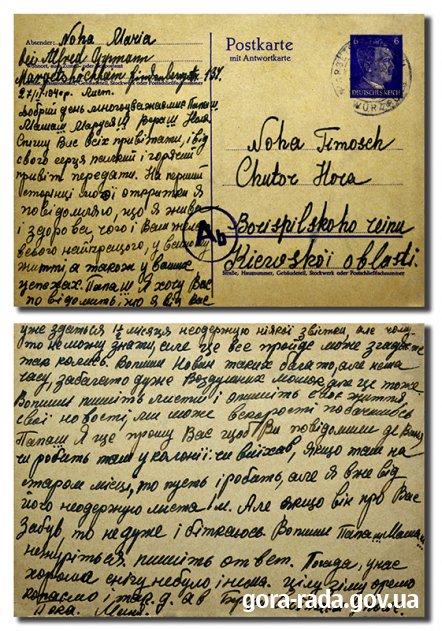 Absender: Noha Maria
bei Alfred Oymann
Wohnort, auch Zustell- oder Leitpostamt
Margetshöchham Lindenbergstr 154.
Straße, Hausnummer, Gebäudeteil, Stockwerk oder Postschließfachnummer
Лист.
Добрий день многоуважаємиє Папаш
Мамаш Маруся
Спішу Вас всіх привітати, і від
свого серця палкий і горячий
привіт передати. На першій
сторінці своєї открытки я
повідомляю, що я жива
і здорова чого і Вам желаю
всього найкращого, у вашому
житті, а також у ваших
успіхах. Папаш я хочу Вас
повідомить, що я від вас
Postkarte
mit Antwortkarte
6 6
DEUTSCHES REICH
WÜRZBURG
Noha Timosch
Chutor Hora
Ab
Borispilskoho reinu
Kiewskoi oblasti.
Straße, Hausnummer, Gebäudeteil, Stockwerk oder Postschließfachnummer
уже здаться 1½ місяця неодержую ніякої звістки, але чому
то не можу знати, але ще все пройде може згадується
так колись. Вопщи Новин таких багато, але нема
часу, забагато дуже Воздушних але це тоже
Вопщи пишіть листи і опишіть своє життя
свої новості, ми може вскорості побачимось
Папаш я ще прошу Вас щоб Ви повідомили де Ваня
чи робить там у колонії чи виїхав, якщо там на
старом місці, то пусть і робить, але я вже від
його неодержую листа м. Але якщо він про Вас
Забув, то не дуже і обіткаюсь. Вопщи Папаш Мамаш
нежуріться пишіть ответ. Погода, у нас
хороша снігу небуло і нема. цілу зіму оремо
копаємо і так д.
Пока.
gora-rada.gov.ua